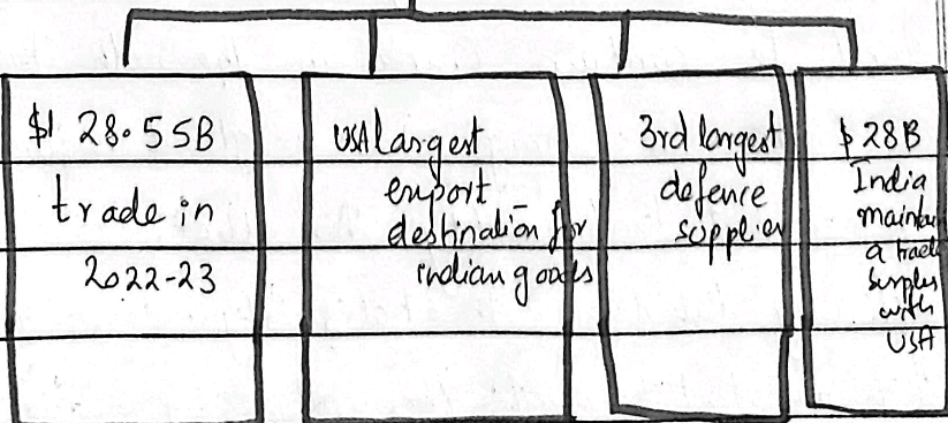 $1 28.55B
trade in
2022-23
USA largest
export
destination for
indian goods
3rd largest
defence
supplier
$28B
India
maintai
a trade
surplus
with
USA